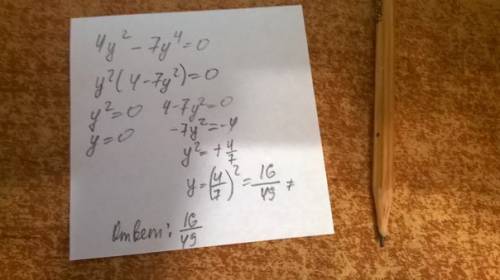 4y² - 7y⁴ = 0
y²(4 - 7y²) = 0
y² = 0 4 - 7y² = 0
y = 0 -7y² = -4
y² = +4/7
y = (4/7)² = 16/49
Ответ: 16/49